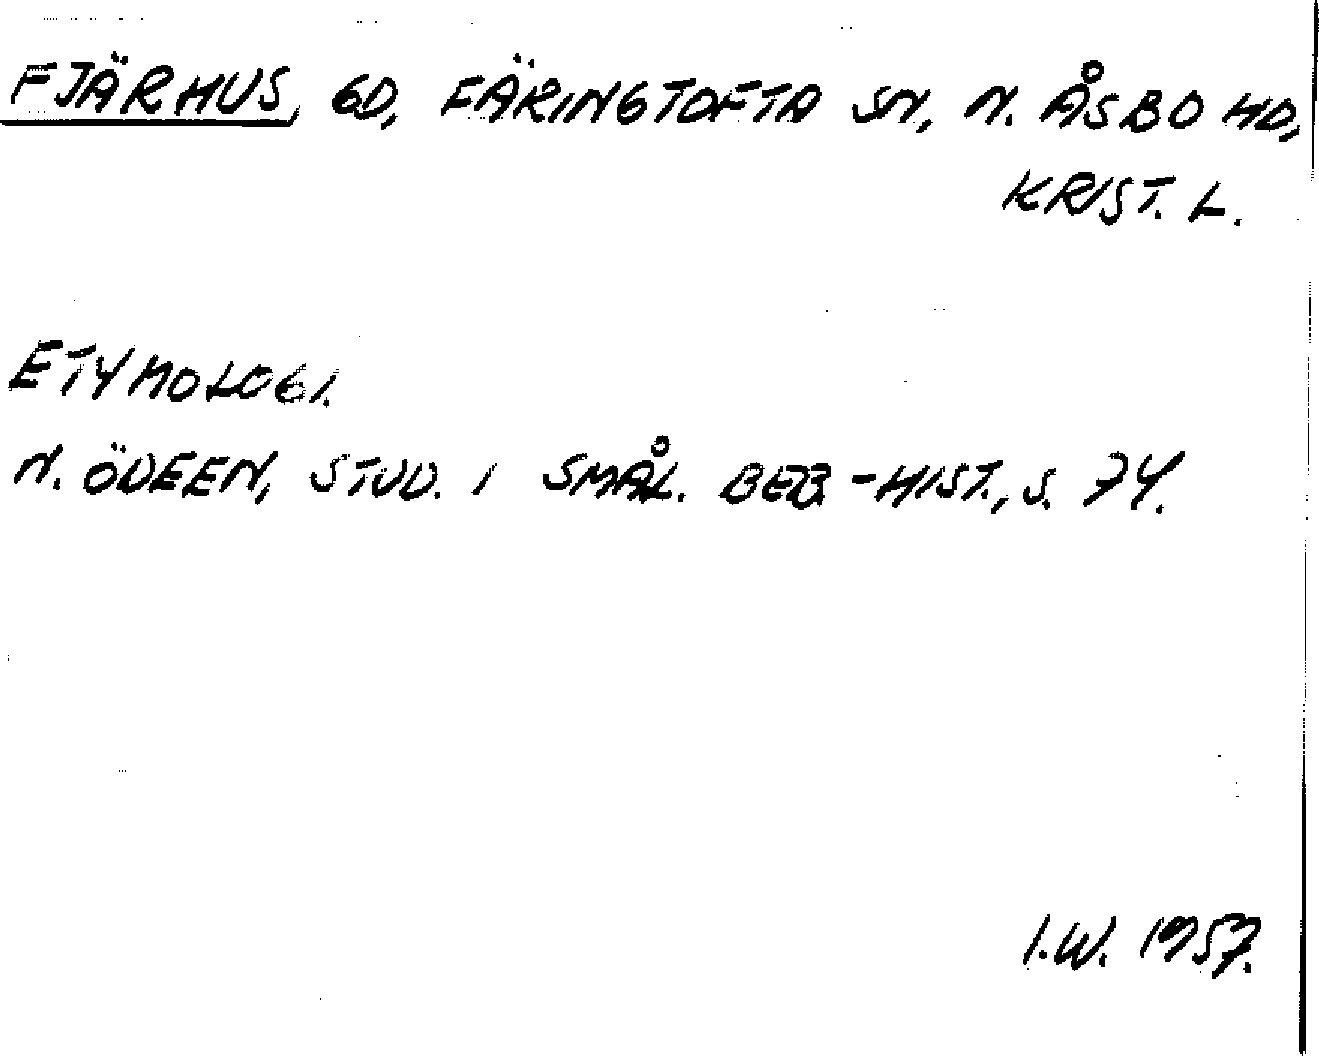 FJÄRHUS, GD, FÄRINGTOFTA SN, N. ÅSBO HD,
KRIST. L.
ETYMOLOGI.
N. ÖDEEN, STUD. I SMÅL. BEB.-HIST., S. 74.
I.W. 1957.